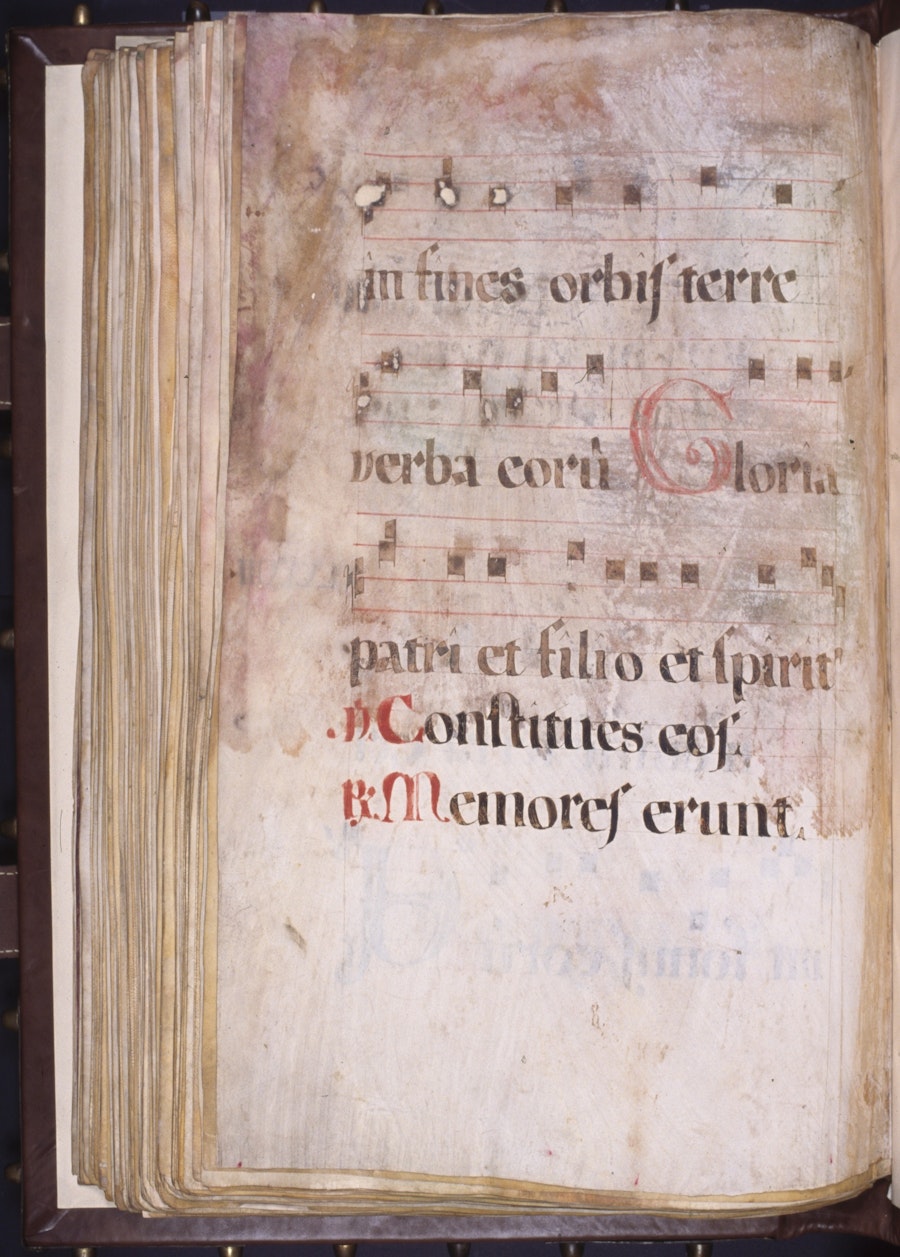 in fines orbiſ terre
verba eorū Gloria
patri et filio et ſpirit
℣. Conſtitues eoſ.
℟. Memoreſ erunt.